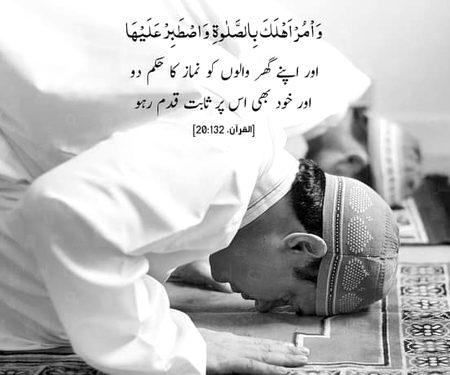 وَاْمُرْ اَهْلَكَ بِالصَّلٰوةِ وَاصْطَبِرْ عَلَيْهَا
اور اپنے گھر والوں کو نماز کا حکم دو
اور خود بھی اس پر ثابت قدم رہو
[القرآن، 20:132]